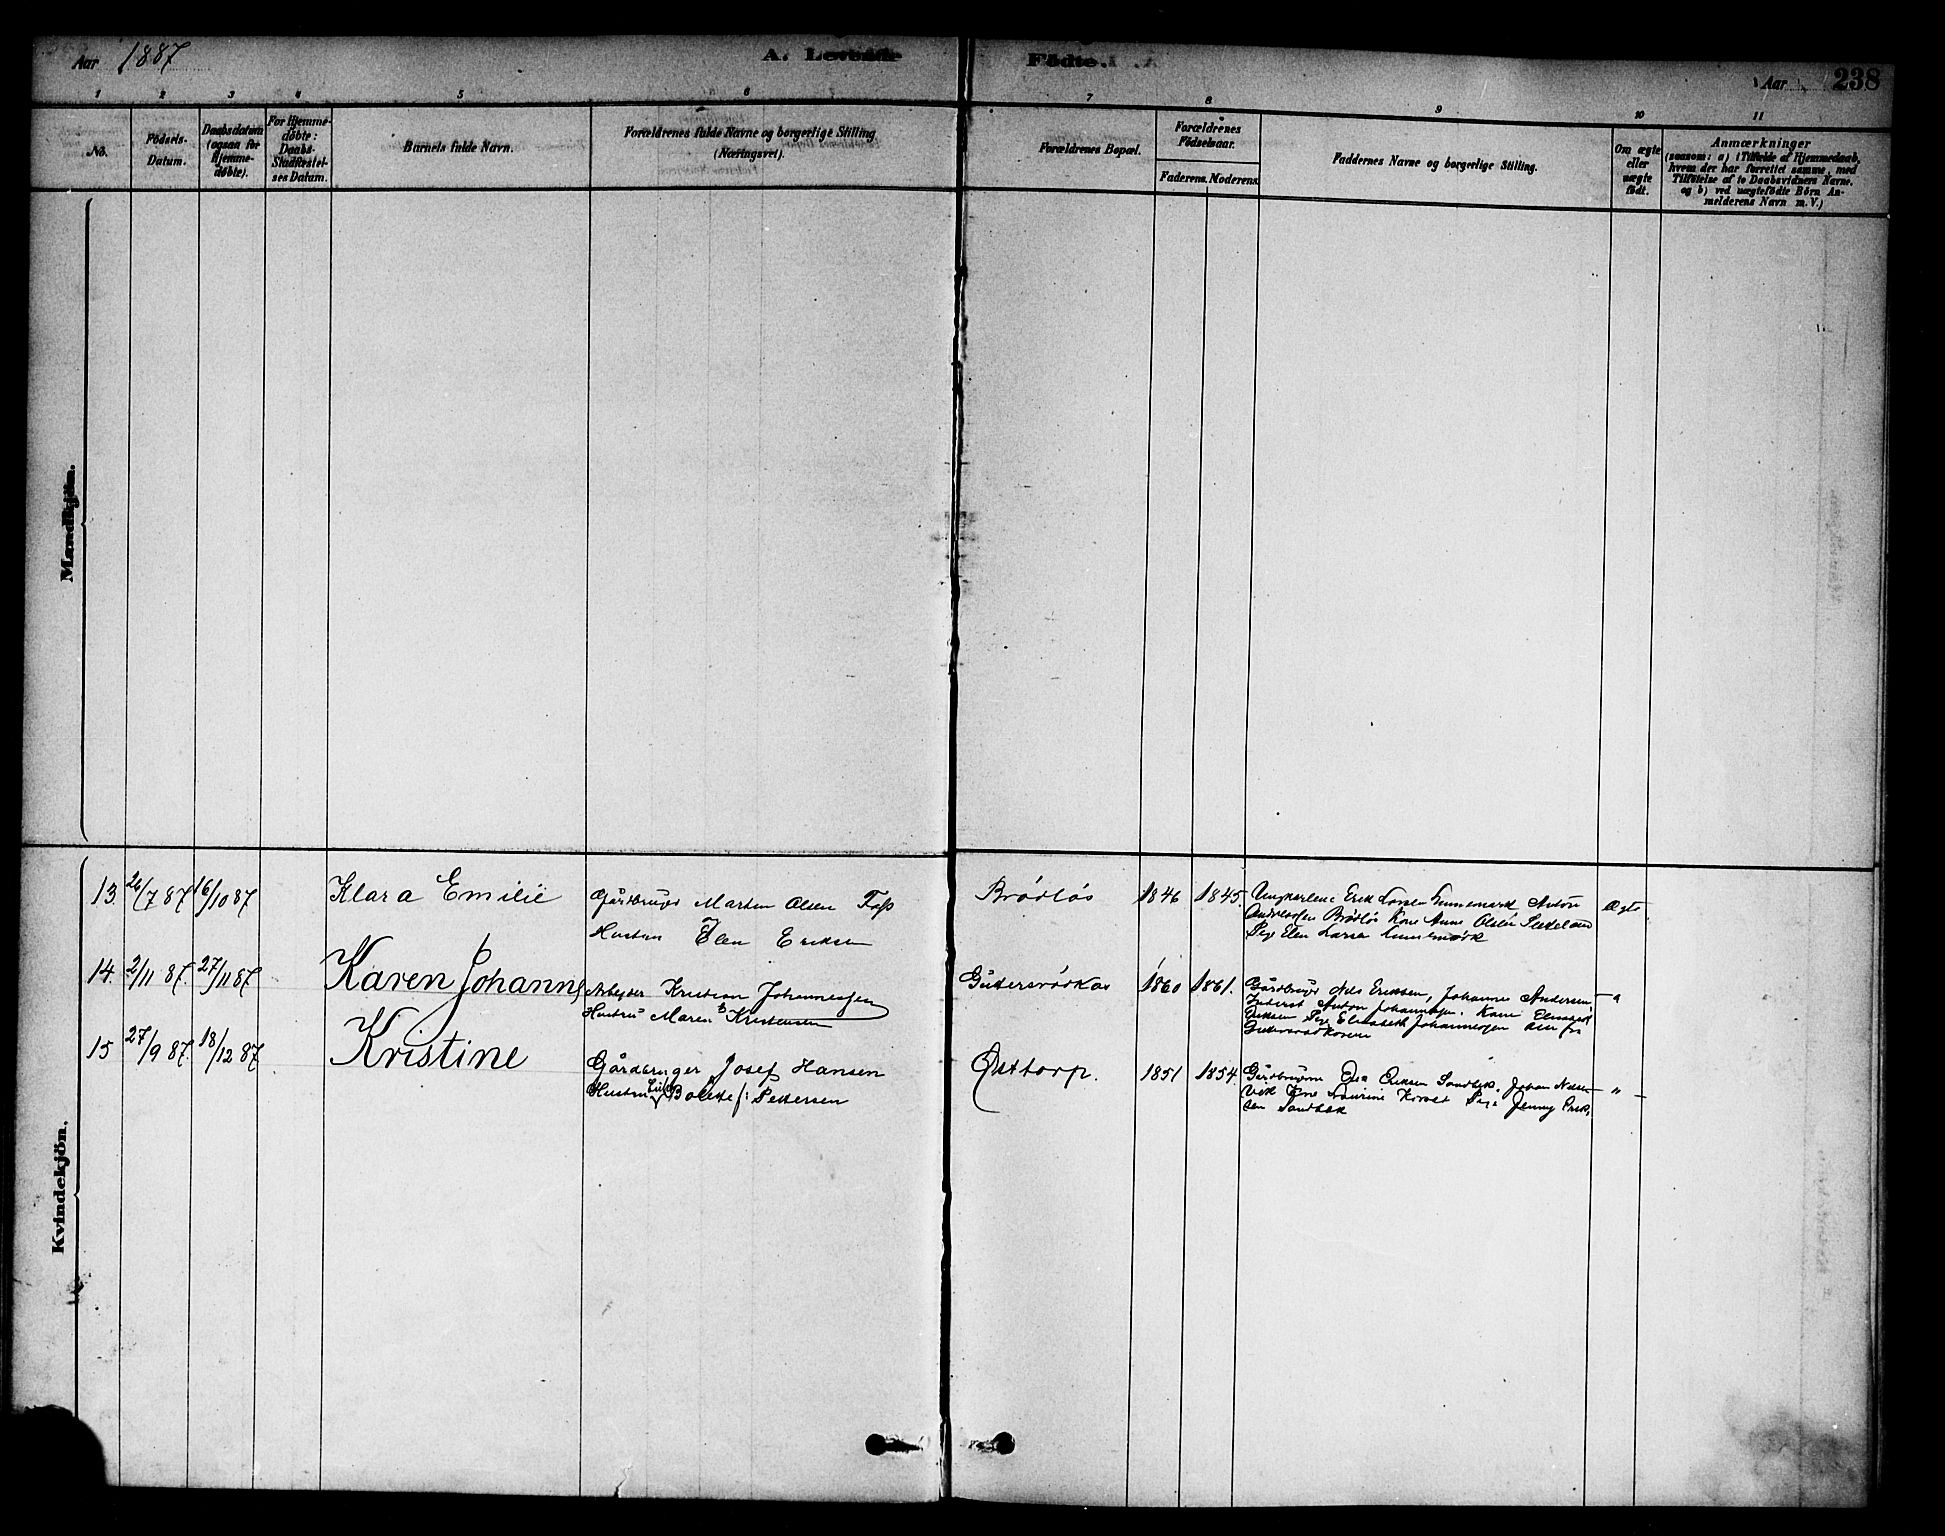 Aar 1887
A. Levende
Födte.
Aar
238
1 2 3 4 5 6 7 8 9 10 11
No.
Födsels-Datum.
Daabsdatum (ogsaa for Hjemme-døbte).
For Hjemme-døbte: Daabs-Stadfæstel-ses Datum.
Barnets fulde Navn.
Forældrenes fulde Navne og borgerlige Stilling (Næringsvei).
Forældrenes Bopæl.
Forældrenes Födselsaar.
Faderens. Moderens.
Faddernes Navne og borgerlige Stilling.
Om ægte eller uægte födt.
Anmærkninger
(saasom: a) i Tilfælde af Hjemmedaab,
hvem der har forrettet samme, med
Tilföielse af to Daabsvidners Navne,
og b) ved uægtefödte Börn An-
melderens Navn m. V.)
Mandkjön.
Kvindekjön.
13. 26/7 87 16/10 87 Klara Emilie Gårdbruger Martin Olsen
Hustru Elen Eriksen
Brödlös 1846 1845. Ungkarlene Erik Larsen Anton
Brödlös Kone Anne Olsen
Pige Elen Larsen
Ægte
14. 2/11 87. 27/11 87 Karen Johanne Arbejder Kristian Johannessen
Hustru Maren Kristensen
1860 1861. Gårdbruger Nils Eriksen, Johannes Andersen
Anton Johannesen. Kone
Eriksen Pige Elisabeth Johannesen
"
15 27/9 87. 18/12 87. Kristine Gårdbruger Josef Hansen
Hustru Bolette f: Pettersen
Østtorp. 1851 1854. Gårdbrugerne Eriksen Sandbæk, Johan Nilsen
Vik Laurine Pige Jenny Erik-
sen Sandbæk
"